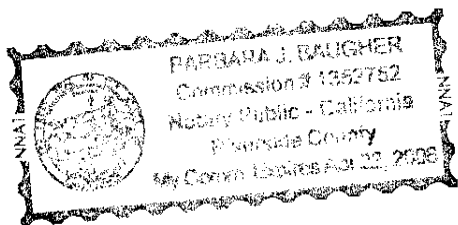 BARBARA J. BAUGHER
Commission # 1352752
Notary Public - California
Riverside County
My Comm. Expires Apr 22, 2006
NNA1
NNA1